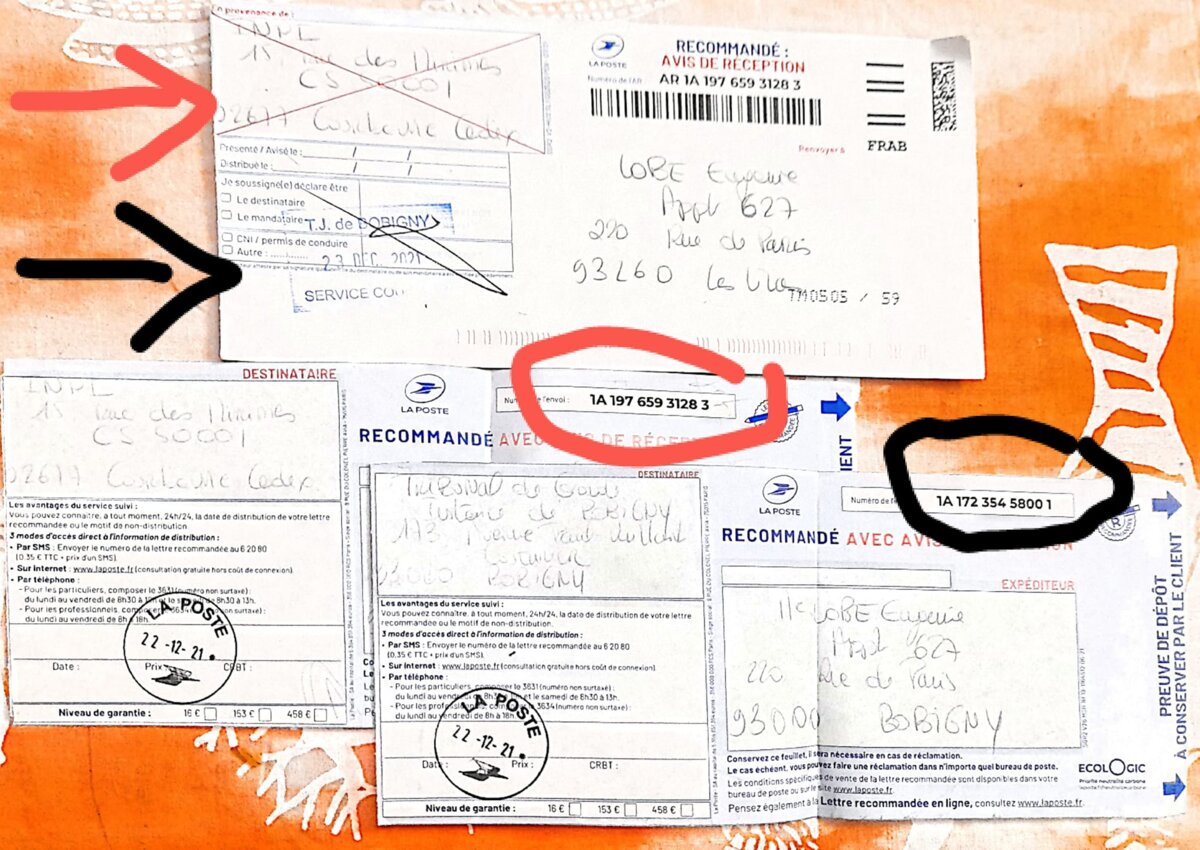 En provenance de :
INPL
15, rue des Minimes
CS 50001
02677 Cedex
Présenté / Avisé le : / /
Distribué le : / /
Je soussigné(e) déclare être
Le destinataire
Le mandataire
CNI / permis de conduire
Autre : ............
T.J. de BOBIGNY
23 DEC. 2021
SERVICE COU
LA POSTE
RECOMMANDÉ :
AVIS DE RÉCEPTION
Numéro de l'AR : AR 1A 197 659 3128 3
FRAB
Renvoyer à
LOBE Eugenie
Appt 627
220 Rue de Paris
93260 Les Lilas
TM0505 / 59
DESTINATAIRE
INPL
15 rue des Minimes
CS 50001
02677 Cedex
LA POSTE
Numéro de l'envoi : 1A 197 659 3128 3
RECOMMANDÉ AVEC AVIS DE RÉCEPT
CLIENT
Les avantages du service suivi :
Vous pouvez connaître, à tout moment, 24h/24, la date de distribution de votre lettre
recommandée ou le motif de non-distribution.
3 modes d'accès direct à l'information de distribution :
• Par SMS : Envoyer le numéro de la lettre recommandée au 6 20 80
(0,35 € TTC + prix d'un SMS).
• Sur internet : www.laposte.fr (consultation gratuite hors coût de connexion).
• Par téléphone :
- Pour les particuliers, composer le 3631 (numéro non surtaxé) :
du lundi au vendredi de 8h30 à 19h et le samedi de 8h30 à 13h.
- Pour les professionnels, composer le 3634 (numéro non surtaxé) :
du lundi au vendredi de 8h à 18h.
LA POSTE
22-12-21
Date : Prix : CRBT :
Niveau de garantie : 16 € 153 € 458 €
DESTINATAIRE
Tribunal de Grande
Instance de BOBIGNY
173 Avenue Paul Vaillant
Couturier
93000 BOBIGNY
Les avantages du service suivi :
Vous pouvez connaître, à tout moment, 24h/24, la date de distribution de votre lettre
recommandée ou le motif de non-distribution.
3 modes d'accès direct à l'information de distribution :
• Par SMS : Envoyer le numéro de la lettre recommandée au 6 20 80
(0,35 € TTC + prix d'un SMS).
• Sur internet : www.laposte.fr (consultation gratuite hors coût de connexion).
• Par téléphone :
- Pour les particuliers, composer le 3631 (numéro non surtaxé) :
du lundi au vendredi de 8h30 à 19h et le samedi de 8h30 à 13h.
- Pour les professionnels, composer le 3634 (numéro non surtaxé) :
du lundi au vendredi de 8h à 18h.
LA POSTE
22-12-21
Date : Prix : CRBT :
Niveau de garantie : 16 € 153 € 458 €
LA POSTE
Numéro de l' 1A 172 354 5800 1
RECOMMANDÉ AVEC AVIS DE RÉCEPTION
EXPÉDITEUR
LOBE Eugenie
Appt 627
220 Rue de Paris
93000 BOBIGNY
Conservez ce feuillet, il sera nécessaire en cas de réclamation.
Le cas échéant, vous pouvez faire une réclamation dans n'importe quel bureau de poste.
Les conditions spécifiques de vente de la lettre recommandée sont disponibles dans votre
bureau de poste ou sur le site www.laposte.fr.
Pensez également à la Lettre recommandée en ligne, consultez www.laposte.fr.
ECOLOGIC
Priorité neutralité carbone
PREUVE DE DÉPÔT
À CONSERVER PAR LE CLIENT